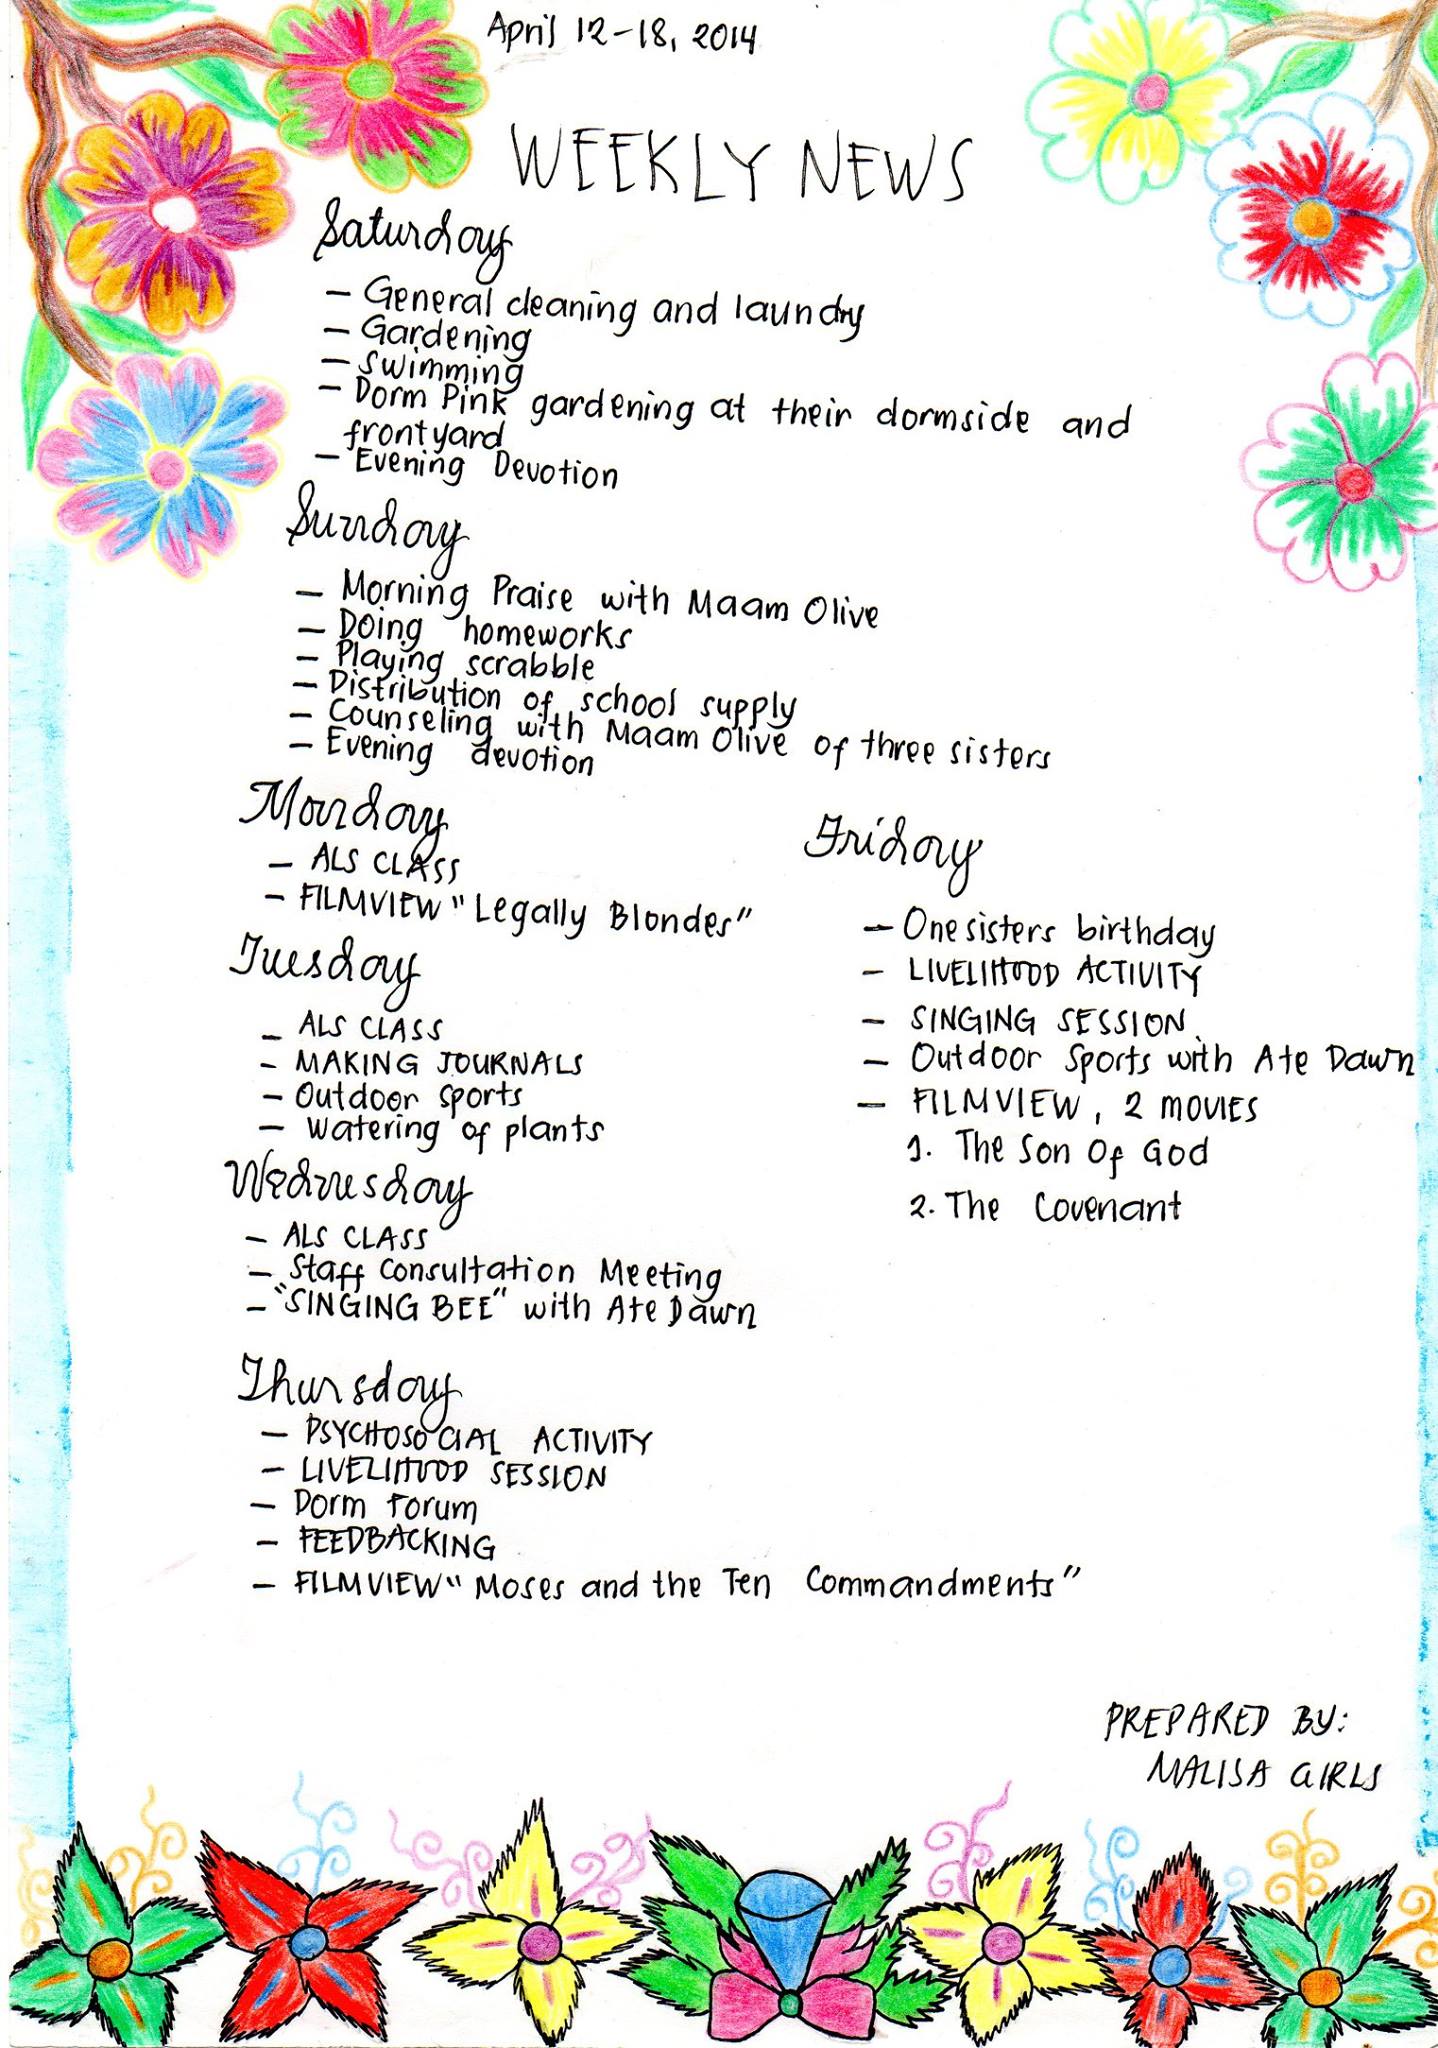 April 12-18, 2014
WEEKLY NEWS
Saturday
- General cleaning and laundry
- Gardening
- Swimming
- Dorm Pink gardening at their dormside and
frontyard
- Evening Devotion
Sunday
- Morning Praise with Maam Olive
- Doing homeworks
- Playing scrabble
- Distribution of school supply
- Counseling with Maam Olive of three sisters
- Evening devotion
Monday
- ALS CLASS
- FILMVIEW "Legally Blondes"
Tuesday
- ALS CLASS
- MAKING JOURNALS
- Outdoor sports
- Watering of plants
Wednesday
- ALS CLASS
- Staff Consultation Meeting
- "SINGING BEE" with Ate Dawn
Thursday
- PSYCHOSOCIAL ACTIVITY
- LIVELIHOOD SESSION
- Dorm Forum
- FEEDBACKING
- FILMVIEW "Moses and the Ten Commandments"
Friday
- One sisters birthday
- LIVELIHOOD ACTIVITY
- SINGING SESSION
- Outdoor Sports with Ate Dawn
- FILMVIEW, 2 MOVIES
1. The Son Of God
2. The Covenant
PREPARED BY:
MALISA GIRLS